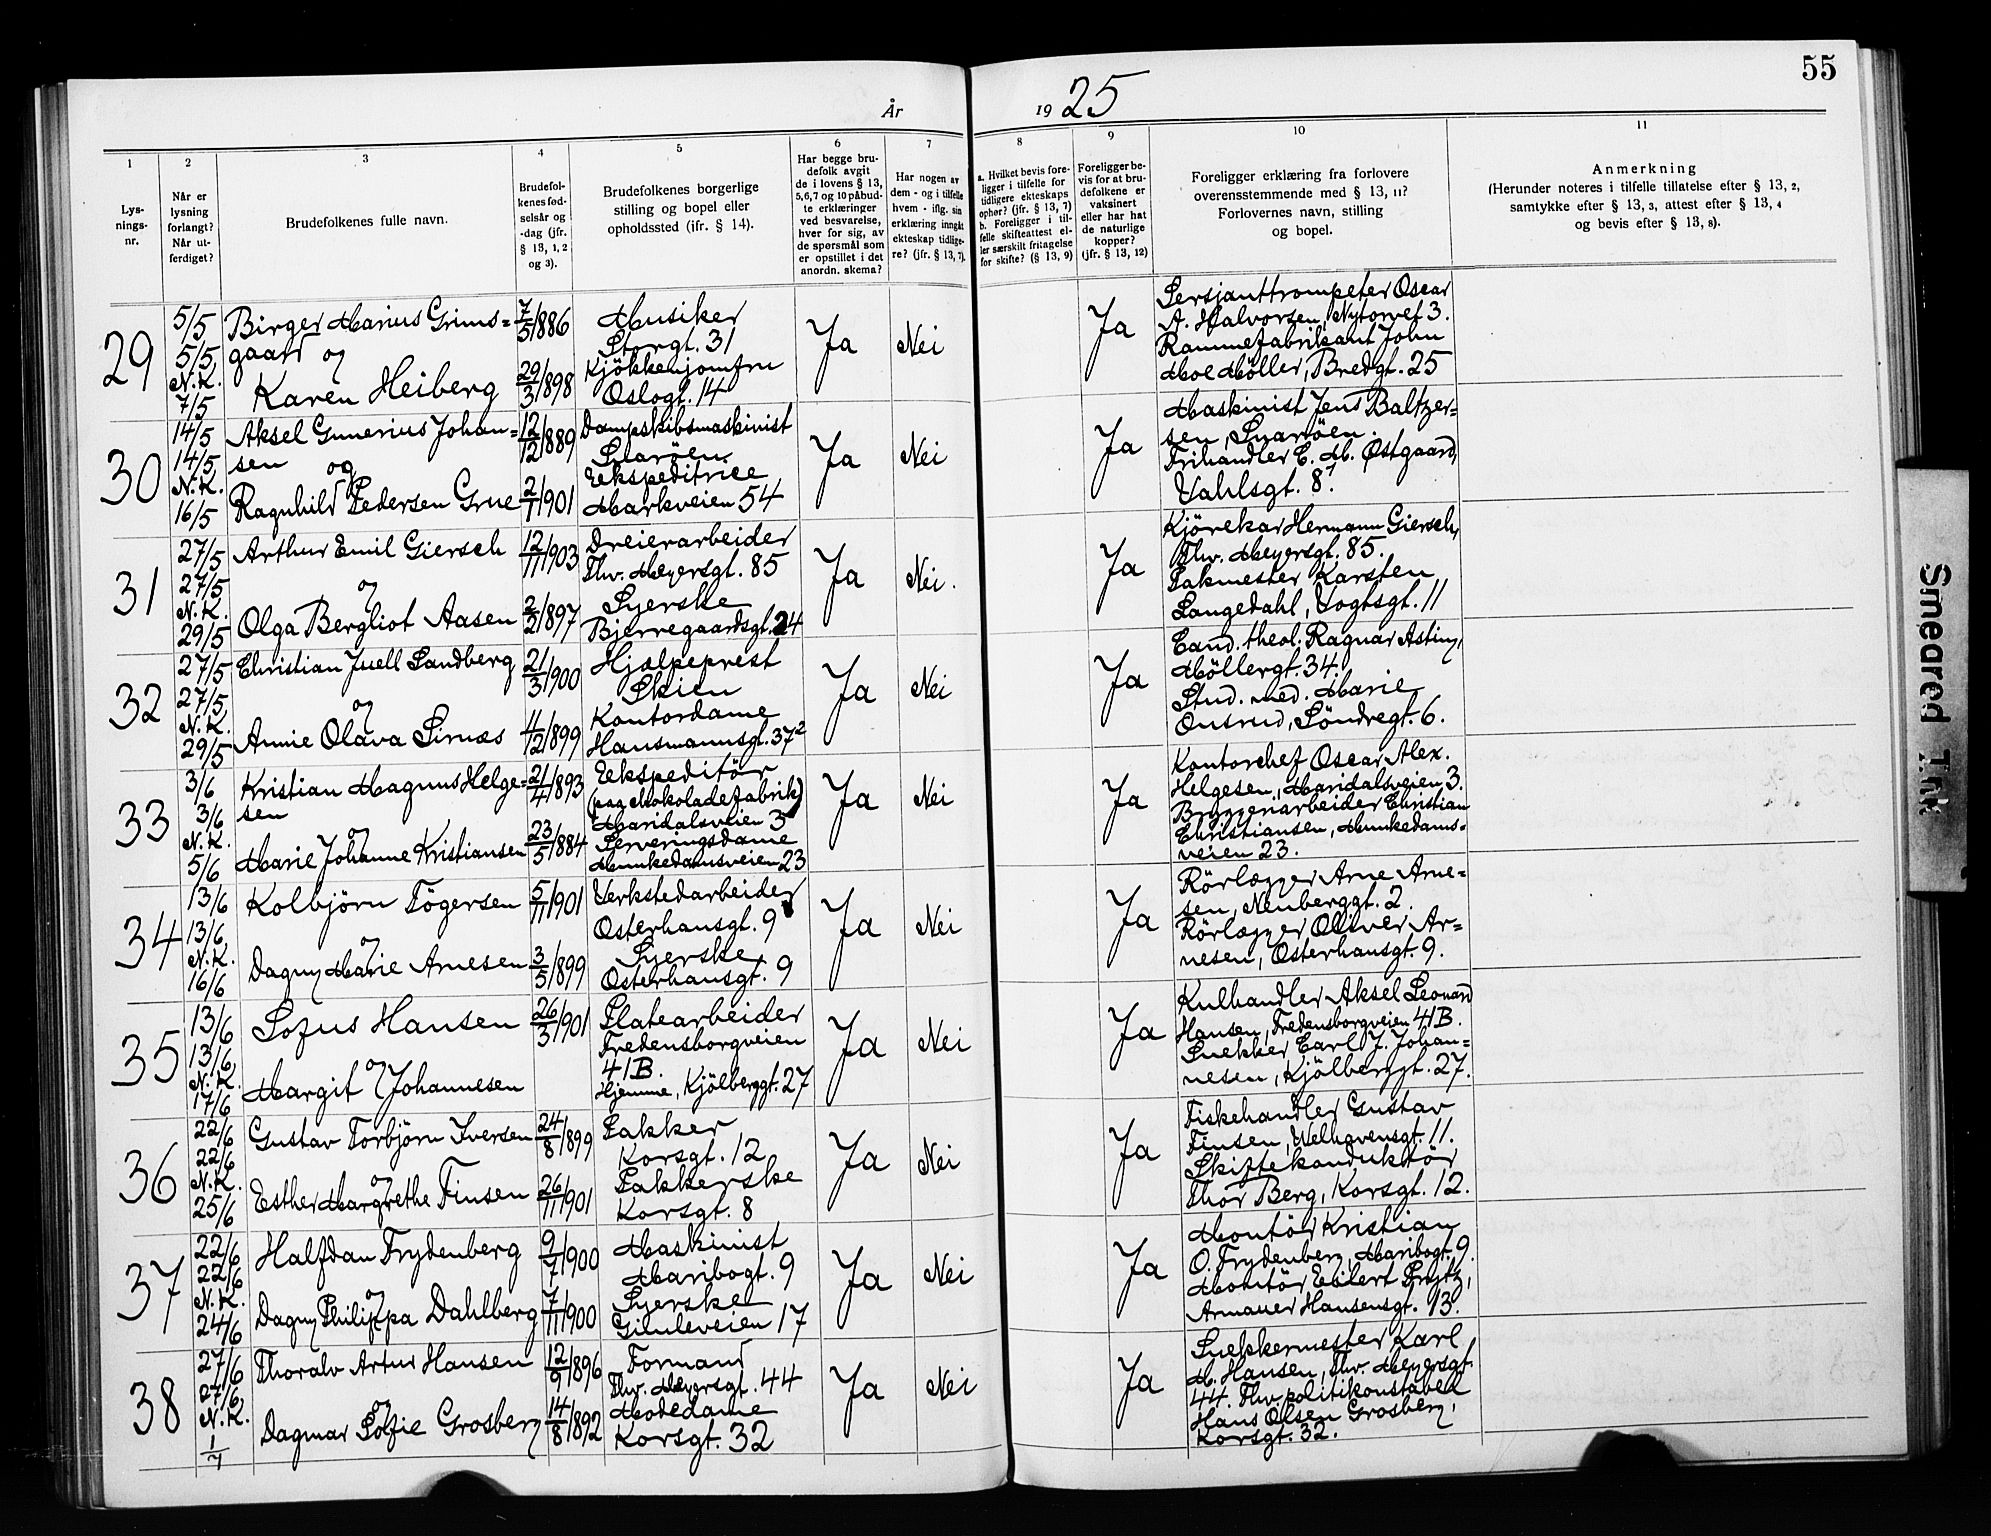 55
År 1925
1 2 3 4 5 6 7 8 9 10 11
Lys-
nings-
nr.
Når er
lysning
forlangt?
Når ut-
ferdiget?
Brudefolkenes fulle navn.
Brudefol-
kenes fød-
selsår og
-dag (jfr.
§ 13, 1, 2
og 3).
Brudefolkenes borgerlige
stilling og bopel eller
opholdssted (jfr. § 14).
Har begge bru-
defolk avgit
de i lovens § 13,
5,6,7 og 10 påbud-
te erklæringer
ved besvarelse,
hver for sig, av
de spørsmål som
er opstillet i det
anordn. skema?
Har nogen av
dem - og i tilfelle
hvem - iflg. sin
erklæring inngåt
ekteskap tidlige-
re? (jfr. § 13, 7).
a. Hvilket bevis fore-
ligger i tilfelle for
tidligere ekteskaps
ophør? (jfr. § 13, 7)
b. Foreligger i til-
felle skifteattest el-
ler særskilt fritagelse
for skifte? (§ 13, 9)
Foreligger be-
vis for at bru-
defolkene er
vaksinert
eller har hat
de naturlige
kopper?
(jfr. § 13, 12)
Foreligger erklæring fra forlovere
overensstemmende med § 13, 11?
Forlovernes navn, stilling
og bopel.
Anmerkning
(Herunder noteres i tilfelle tillatelse efter § 13, 2,
samtykke efter § 13, 3, attest efter § 13, 4
og bevis efter § 13, 8).
29
5/5
5/5
N.K.
7/5
Birger Marius Grims=
gaard og
Karen Heiberg
7/5 1886
29/3 1898
Musiker
Storgt. 31
Kjökkenjomfru
Oslogt. 14
Ja
Nei
Ja
Sersjanttrompeter Oscar
A. Halvorsen, Nytorvet 3.
Rammefabrikant John
Moe Möller, Bredgt. 25
30
14/5
14/5
N.K.
16/5
Aksel Gunerius Johan=
sen og
Ragnhild Pedersen Grue
12/12 1889
2/1 1901
Dampskibsmaskinist
Snaröen
Ekspeditrice
Markveien 54
Ja
Nei
Ja
Maskinist Jens Baltzer=
sen, Snaröen.
Frihandler C. M. Østgaard,
Vahlsgt. 8.
31
27/5
27/5
N.K.
29/5
Arthur Emil Giersch
og
Olga Bergliot Aasen
12/11 1903
2/2 1897
Dreierarbeider
Thv. Meyersgt. 85
Syerske
Bjerregaardsgt. 24
Ja
Nei.
Ja
Kjörekar Hermann Giersch,
Thv. Meyersgt. 85.
Pakmester Karsten
Langedahl, Vogtsgt. 11
32
27/5
27/5
N.K.
29/5
Christian Juell Sandberg
og
Annie Olava Sirnæs
21/3 1900
11/12 1899
Hjælpeprest
Skien
Kontordame
Hausmannsgt. 37²
Ja
Nei
Ja
Cand. theol. Ragnar Asting,
Möllergt. 34.
Stud. med. Marie
Onsrud, Söndregt. 6.
33
3/6
3/6
N.K.
5/6
Kristian Magnus Helge=
sen
og
Marie Johanne Kristiansen
21/4 1893
23/5 1884
Ekspeditör
(paa chokoladefabrik)
Maridalsveien 3
Serveringsdame
Munkedamsveien 23
Ja
Nei
Ja
Kontorchef Oscar Alex.
Helgesen, Maridalsveien 3.
Bryggeriarbeider Christian
Christiansen, Munkedams=
veien 23.
34
13/6
13/6
N.K.
16/6
Kolbjörn Tögersen
og
Dagny Marie Arnesen
5/11 1901
3/5 1899
Verkstedarbeider
Osterhausgt. 9
Syerske
Osterhausgt. 9
Ja
Nei
Ja
Rörlægger Arne Arne=
sen, Neuberggt. 2.
Rörlægger Oliver Ar=
nesen, Osterhausgt. 9.
35
13/6
13/6
N.K.
17/6
Sofus Hansen
og
Margit Johannesen
26/3 1901
Platearbeider
Fredensborgveien
41B.
Hjemme, Kjölberggt. 27
Ja
Nei
Ja
Kulhandler Aksel Leonard
Hansen, Fredensborgveien 41B.
Snekker Carl J. Johan=
nesen, Kjölberggt. 27.
36
22/6
22/6
N.K.
25/6
Gustav Torbjörn Iversen
og
Esther Margrethe Finsen
24/8 1899
26/11 1901
Pakker
Korsgt. 12
Pakkerske
Korsgt. 8
Ja
Nei
Ja
Fiskehandler Gustav
Finsen, Welhavensgt. 11.
Skiftekonduktör
Thor Berg, Korsgt. 12.
37
22/6
22/6
N.K.
24/6
Halfdan Frydenberg
og
Dagny Philippa Dahlberg
9/7 1900
7/11 1900
Maskinist
Maribogt. 9
Syerske
Gimleveien 17
Ja
Nei
Ja
Montör Kristian
O. Frydenberg, Maribogt. 9.
Montör Eilert Prytz,
Armauer Hansensgt. 13.
38
27/6
27/6
N.K.
1/7
Thoralv Artur Hansen
og
Dagmar Sofie Grosberg
12/9 1896
14/8 1892
Formand
Thv. Meyersgt. 44
Motedame
Korsgt. 32
Ja
Nei
Ja
Snekkermester Karl
M. Hansen, Thv. Meyersgt.
44. Fhv. politikonstabel
Hans Olsen Grosberg,
Korsgt. 32.
Smeared Ink